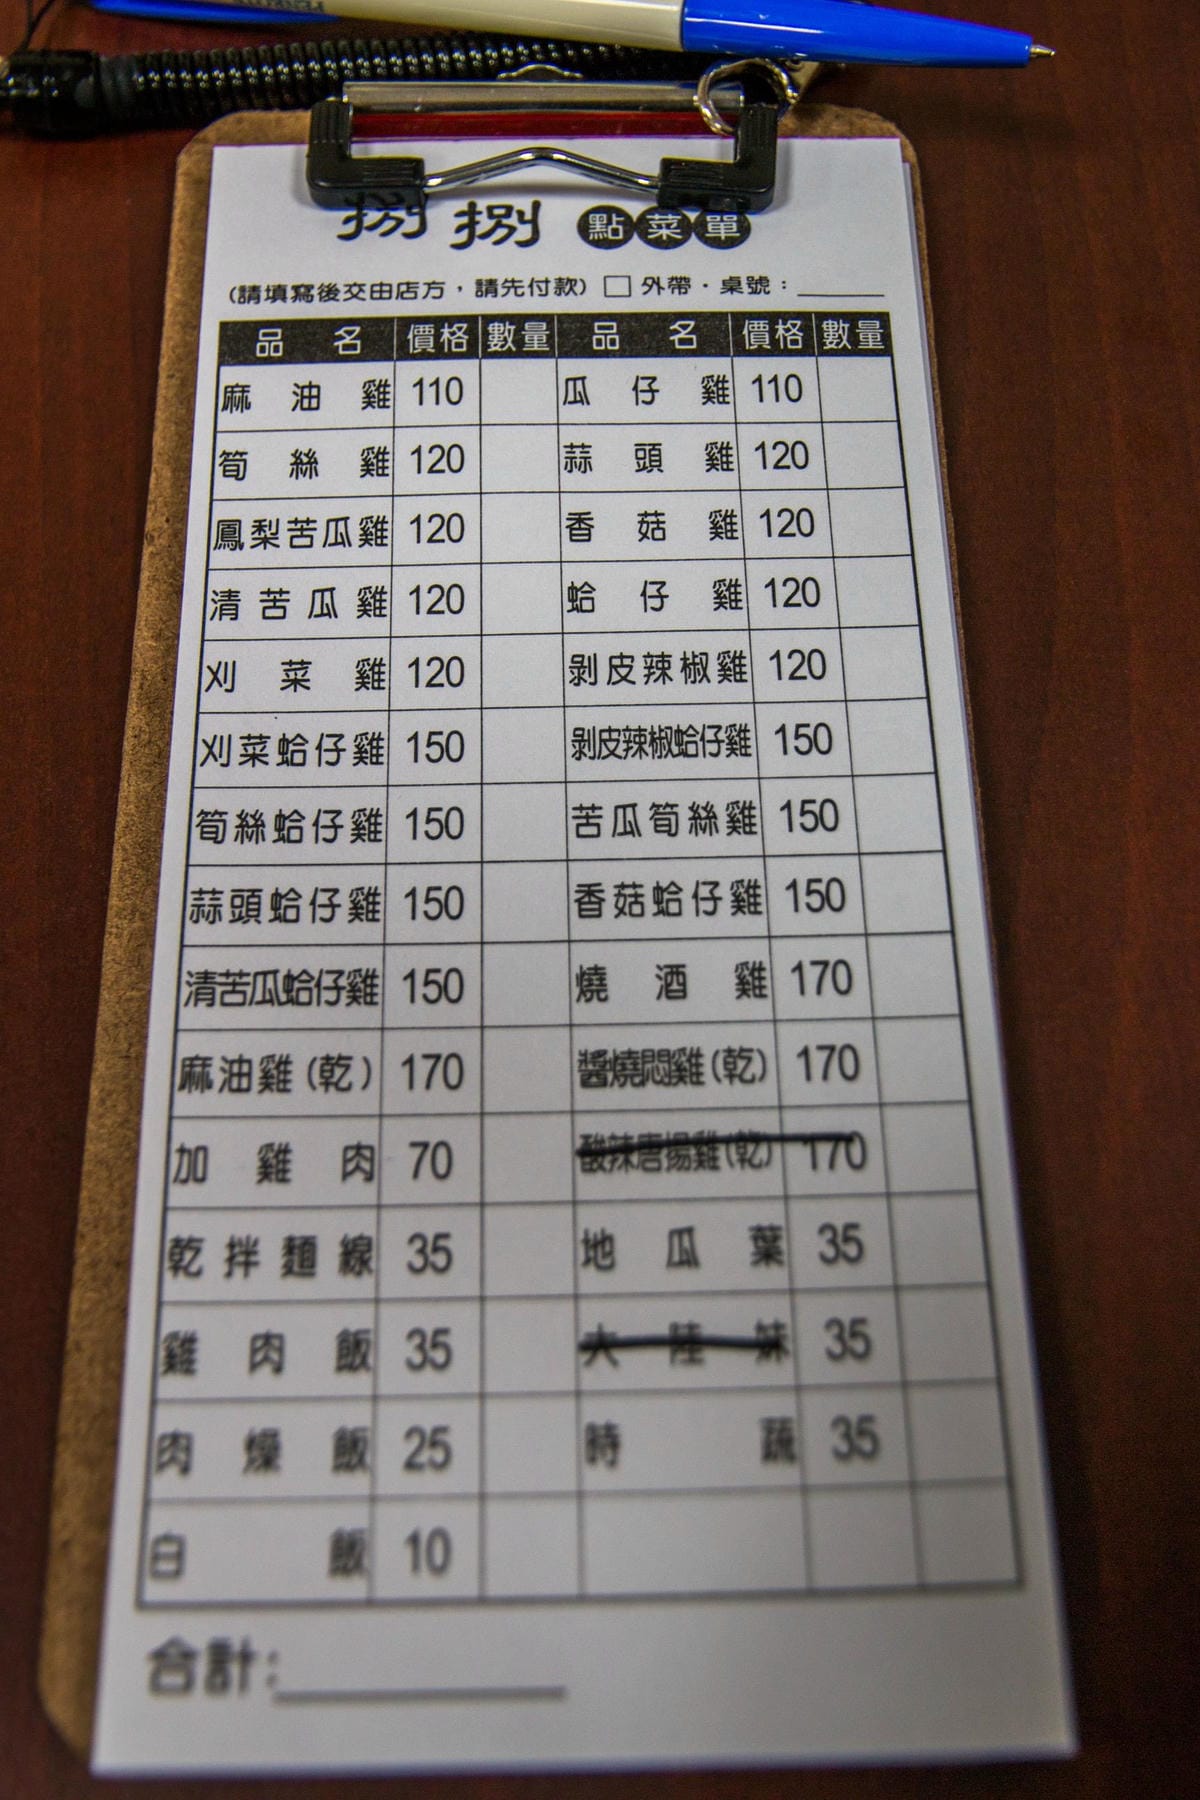 捌捌 點菜單
(請填寫後交由店方,請先付款) □ 外帶・桌號:______
品名 價格 數量 品名 價格 數量
麻油雞 110 瓜仔雞 110
筍絲雞 120 蒜頭雞 120
鳳梨苦瓜雞 120 香菇雞 120
清苦瓜雞 120 蛤仔雞 120
刈菜雞 120 剝皮辣椒雞 120
刈菜蛤仔雞 150 剝皮辣椒蛤仔雞 150
筍絲蛤仔雞 150 苦瓜筍絲雞 150
蒜頭蛤仔雞 150 香菇蛤仔雞 150
清苦瓜蛤仔雞 150 燒酒雞 170
麻油雞(乾) 170 醬燒悶雞(乾) 170
加雞肉 70 酸辣唐揚雞(乾) 170
乾拌麵線 35 地瓜葉 35
雞肉飯 35 大陸妹 35
肉燥飯 25 時蔬 35
白飯 10
合計:______